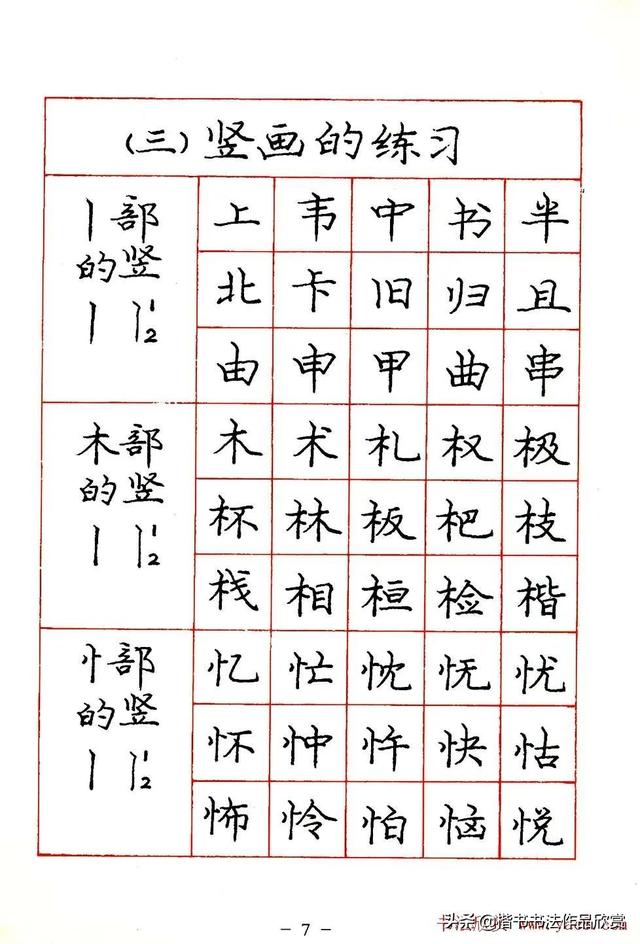 (三)竖画的练习
丨部
的竖
丨 丨12
上 韦 中 书 半
北 卡 旧 归 且
由 申 甲 曲 串
木部
的竖
丨 丨12
木 术 札 权 极
杯 林 板 杷 枝
栈 相 桓 检 楷
忄部
的竖
丨 丨12
忆 忙 忱 怃 忧
怀 忡 忤 快 怙
怖 怜 怕 恼 悦
头条@楷书书法作品欣赏
- 7 -